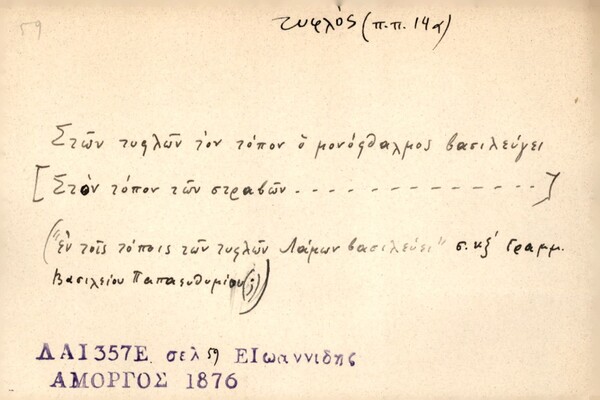 59
τυφλὸς (π.π. 14α)
Στῶν τυφλῶν τὸν τόπον ὁ μονόφθαλμος βασιλεύγει
[Στὸν τόπον τῶν στραβῶν - - - - - - - - - - - - - -]
("ἐν τοῖς τόποις τῶν τυφλῶν Λάμων βασιλεύει" σ. κξ´ Γραμμ.
Βασιλείου Παπαευθυμίου (;))
ΛΑΙ357Ε σελ 59 ΕΙωαννιδης
ΑΜΟΡΓΟΣ 1876